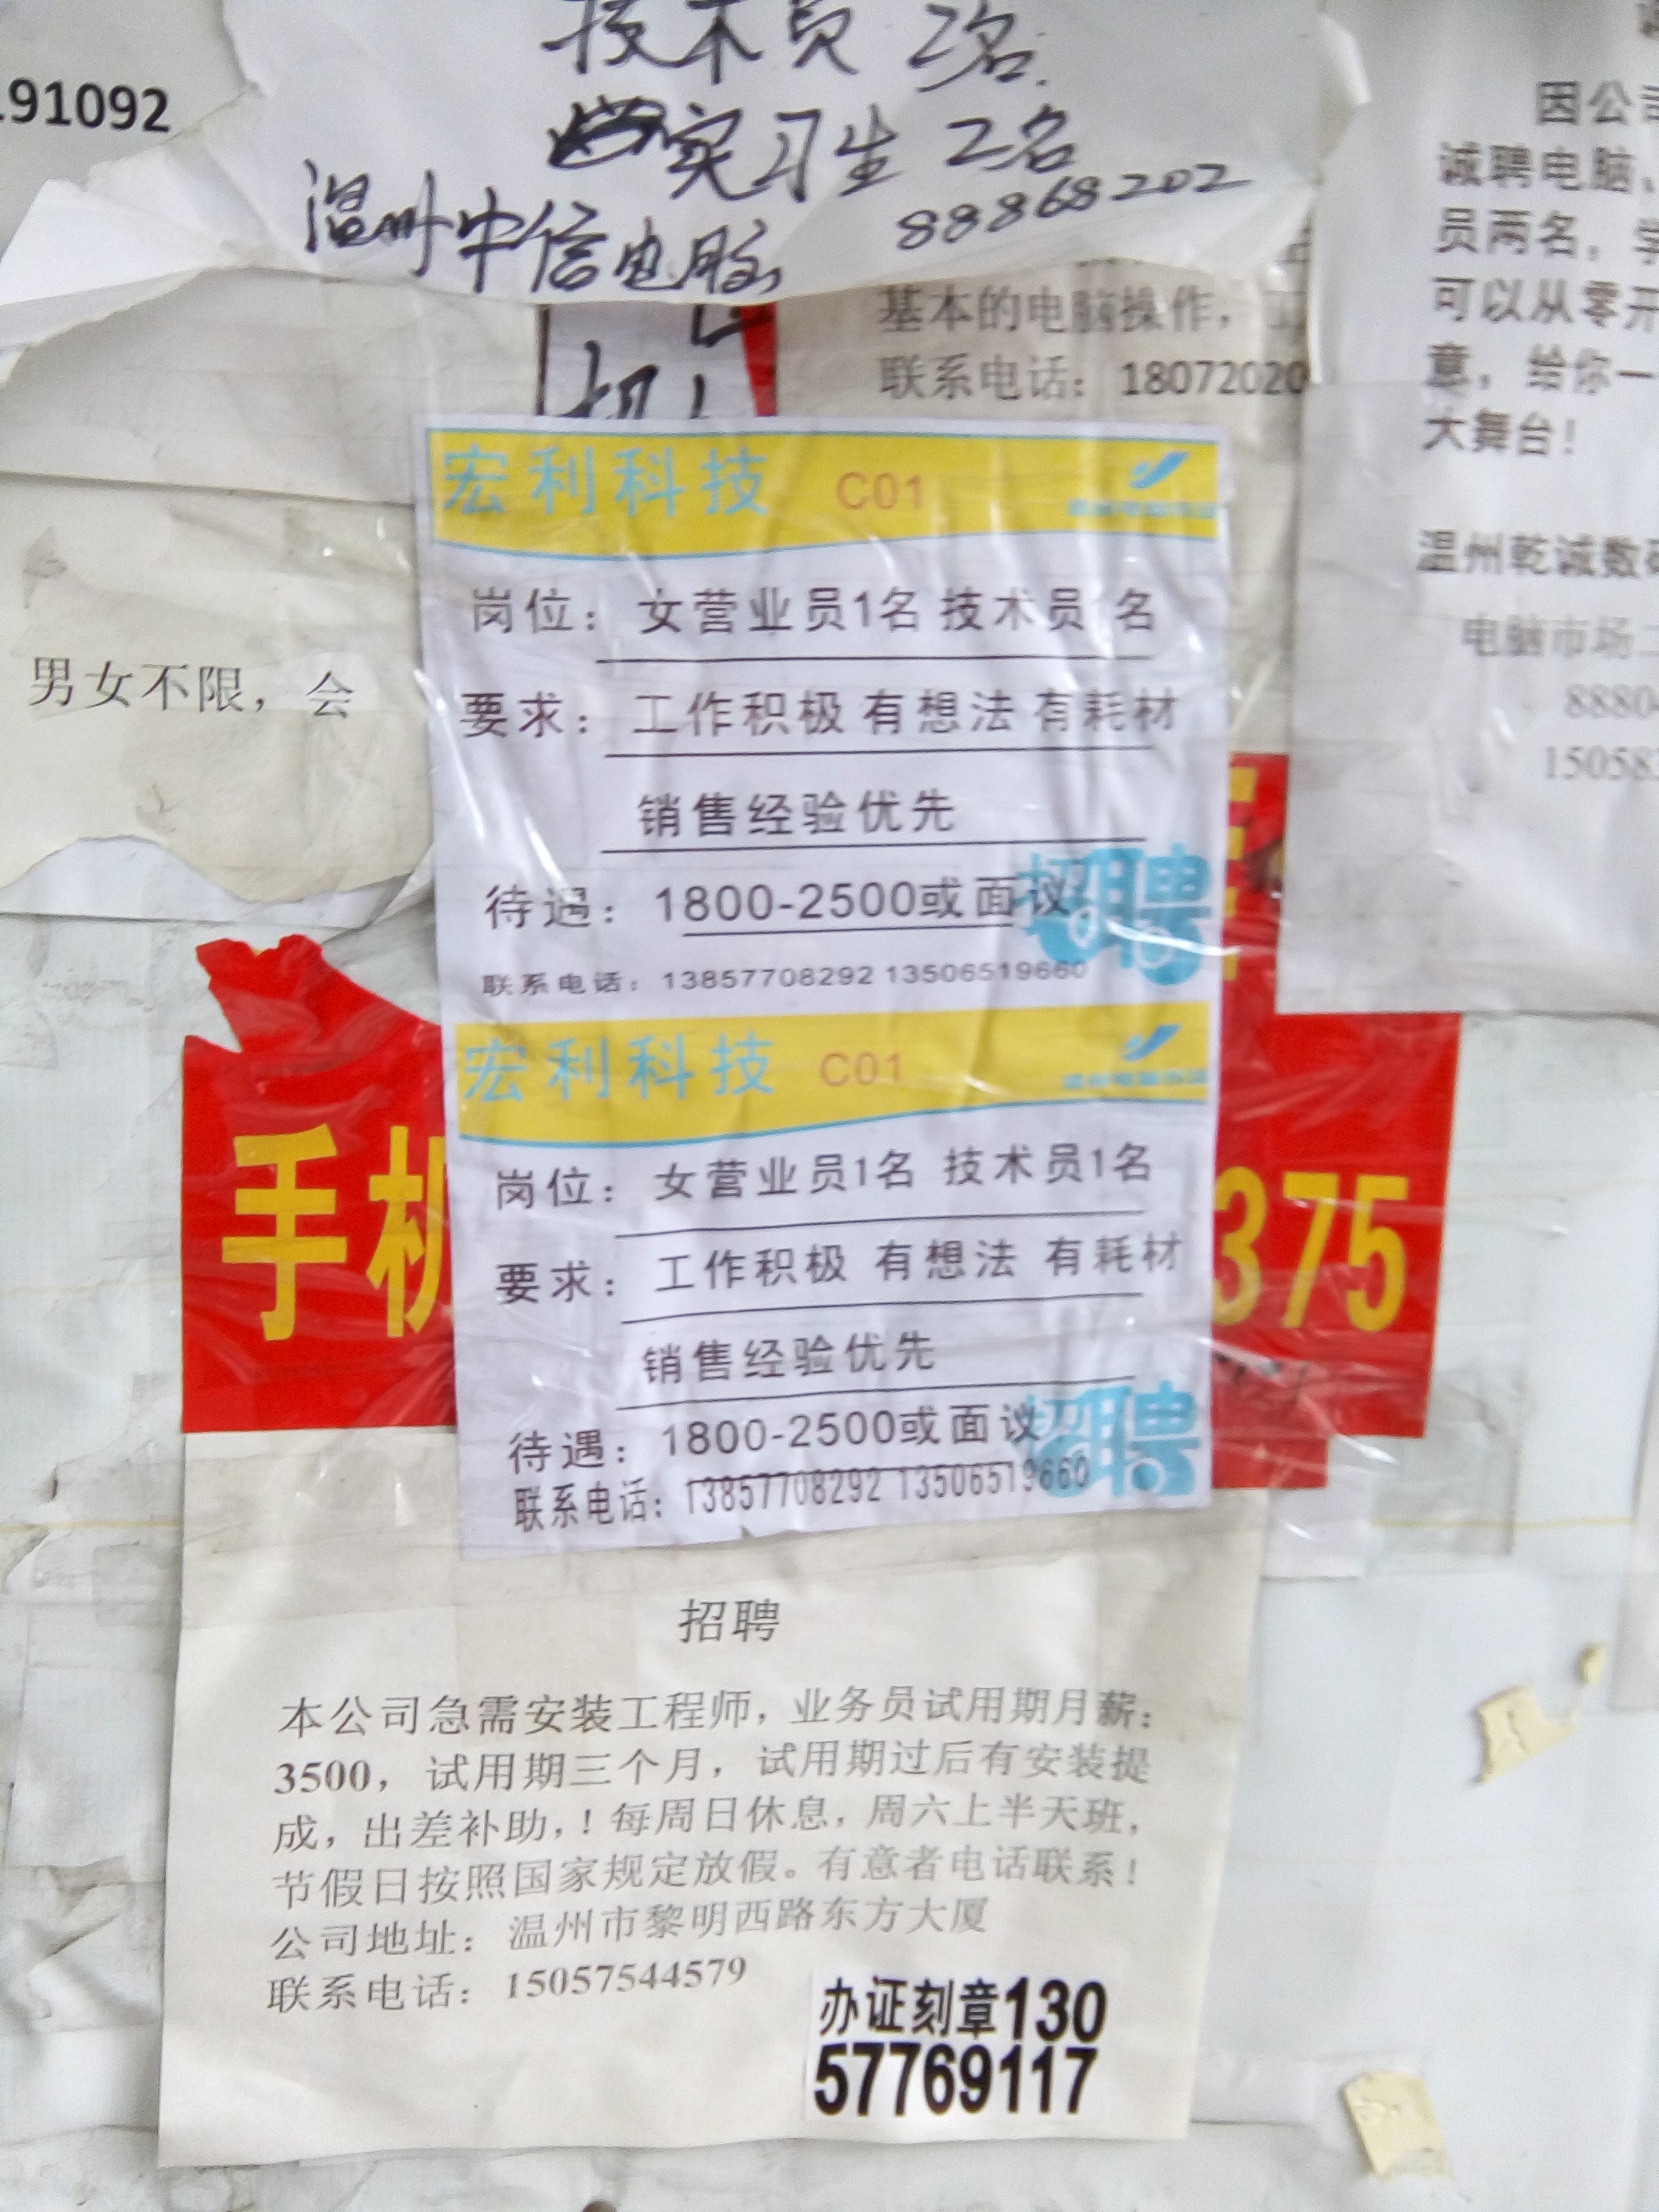 191092
技术员 2名.
实习生 2名
温州中信电脑 88868202
基本的电脑操作，
联系电话：18072020
因公司
诚聘电脑、
员两名，学
可以从零开
意，给你一
大舞台！
温州乾诚数码
电脑市场二
8880
15058
男女不限，会
宏利科技 C01
岗位：女营业员1名 技术员 名
要求：工作积极 有想法 有耗材
销售经验优先
待遇：1800-2500或面议
招聘
联系电话：13857708292 13506519660
宏利科技 C01
岗位：女营业员1名 技术员1名
要求：工作积极 有想法 有耗材
销售经验优先
待遇：1800-2500或面议
招聘
联系电话：13857708292 13506519660
手机
375
招聘
本公司急需安装工程师，业务员试用期月薪：
3500，试用期三个月，试用期过后有安装提
成，出差补助，！每周日休息，周六上半天班，
节假日按照国家规定放假。有意者电话联系！
公司地址：温州市黎明西路东方大厦
联系电话：15057544579
办证刻章130
57769117